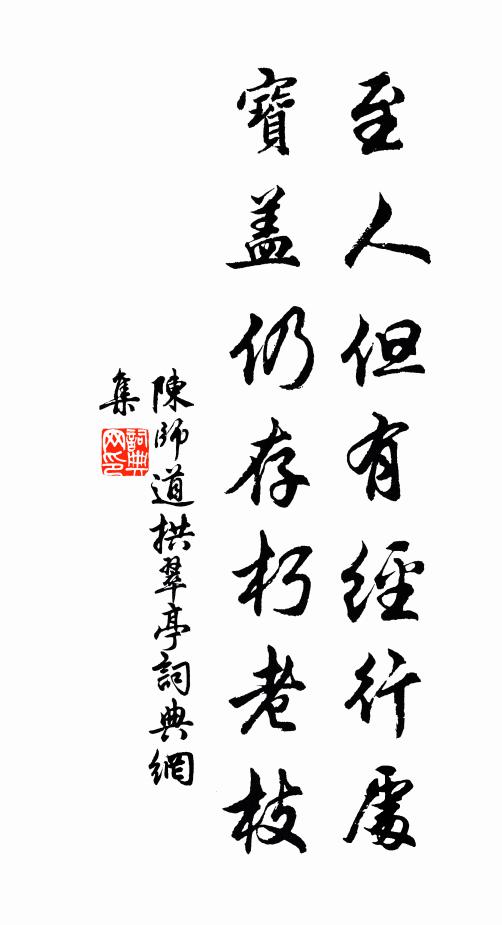 至人但有經行處
寶盖仍存朽老枝
陳師道拱翠亭詞典網
集
詞典網印